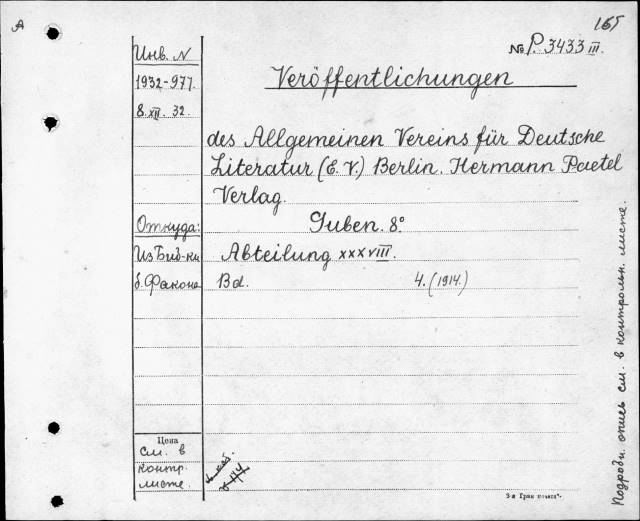 A
165
№ P. 3433 III.
Инв. N
1932-977.
8. XII. 32.
Veröffentlichungen
des Allgemeinen Vereins für Deutsche
Literatur (E. V.) Berlin. Hermann Paetel
Verlag.
Откуда:
Guben. 8°
Из Биб-ки
Abteilung XXXVIII.
б. Факоне
Bd. 4. (1914.)
Цена
см. в
контр.
листе.
Подробн. опись см. в контрольн. листе.